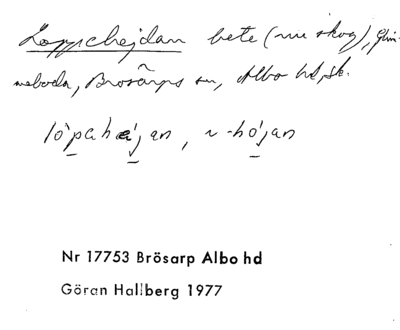 Loppehejdan bete (nu skog), Glim-
meboda, Brösarps sn, Albo hd, Sk.
lo̱`pahæ̱´jan, ~-hö̱´jan
Nr 17753 Brösarp Albo hd
Göran Hallberg 1977